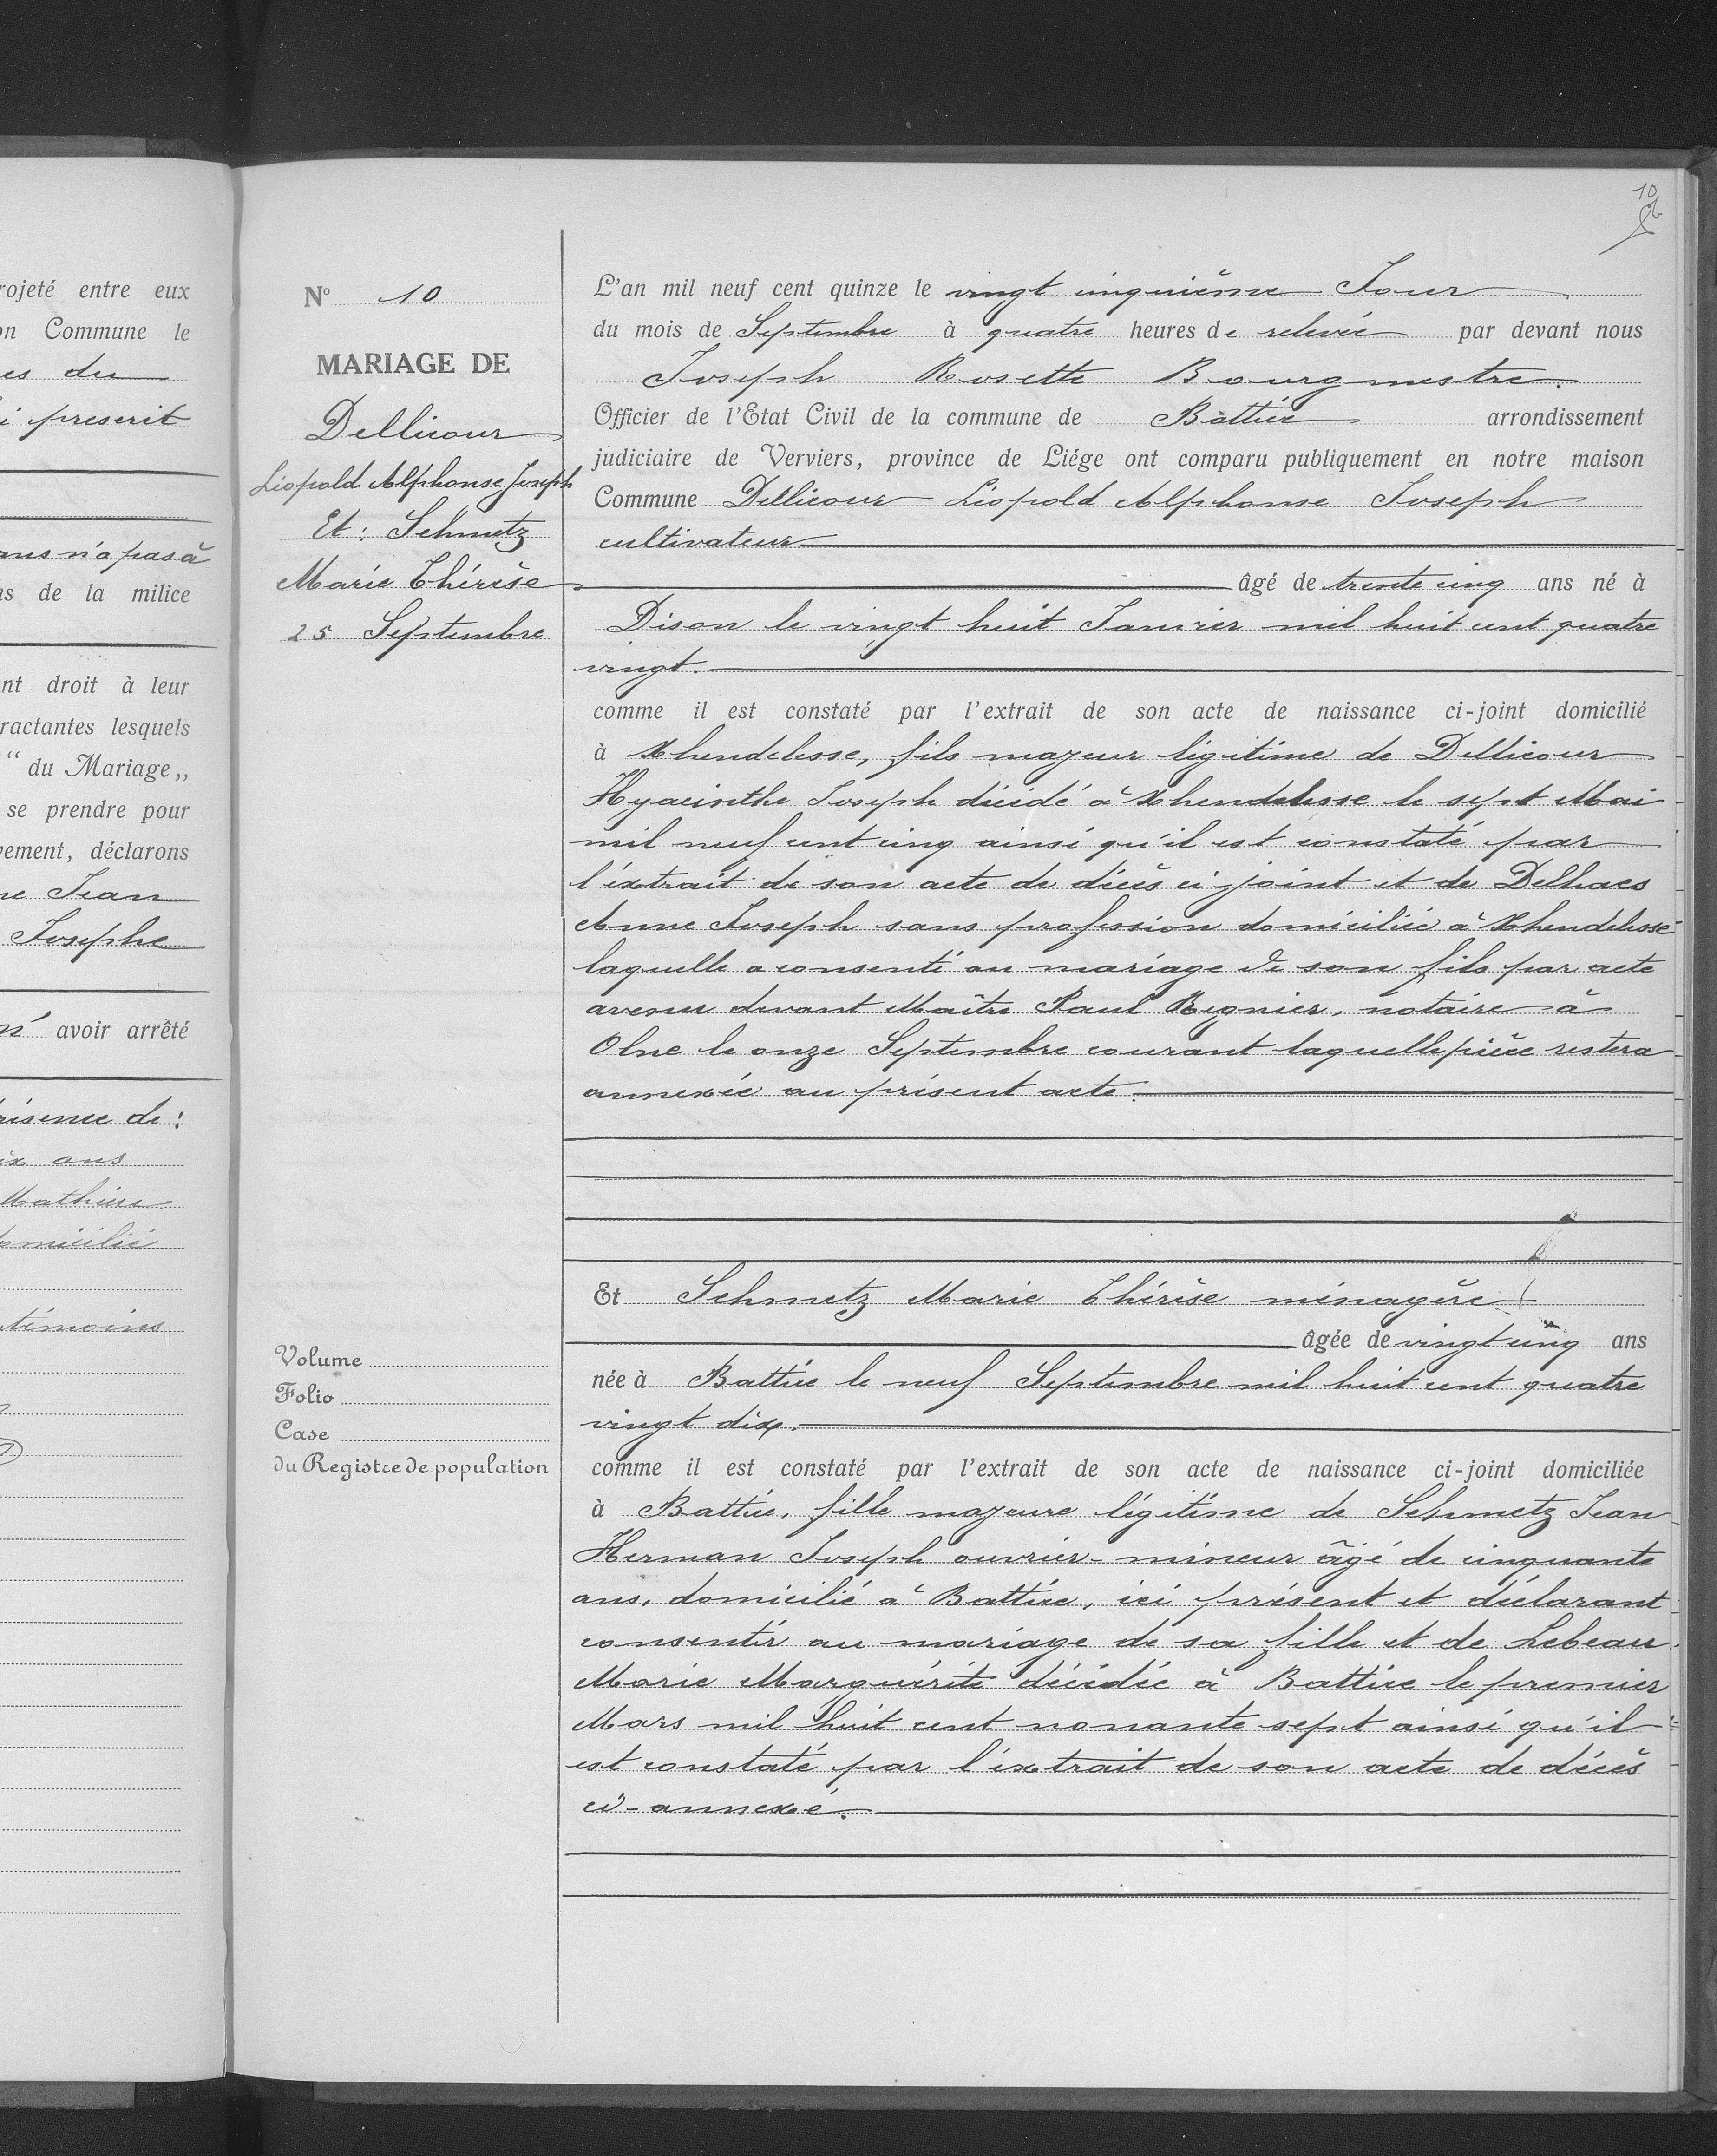 rojeté entre eux
on Commune le
es du
i prescrit
ans n'a pas à
ns de la milice
nt droit à leur
ractantes lesquels
“ du Mariage „
se prendre pour
vement, déclarons
ne Jean
Josephe
n' avoir arrêté
résence de :
ix ans
Mathieu
omicilié
témoins
10
N° 10
MARIAGE DE
Dellicour
Léopold Alphonse Joseph
Et : Schmetz
Marie Thérèse
25 Septembre
Volume
Folio
Case
du Registre de population
L'an mil neuf cent quinze le vingt cinquième Jour
du mois de Septembre à quatre heures de relevée par devant nous
Joseph Rosette Bourgmestre.
Officier de l'Etat Civil de la commune de Battice arrondissement
judiciaire de Verviers, province de Liége ont comparu publiquement en notre maison
Commune Dellicour Léopold Alphonse Joseph
cultivateur
âgé de trente cinq ans né à
Dison le vingt huit Janvier mil huit cent quatre
vingt.
comme il est constaté par l'extrait de son acte de naissance ci-joint domicilié
à Xhendelesse, fils majeur légitime de Dellicour
Hyacinthe Joseph décédé à Xhendelesse le sept Mai
mil neuf cent cinq ainsi qu'il est constaté par
l'extrait de son acte de décès ci-joint et de Delhaes
Anne Joseph sans profession domiciliée à Xhendelesse
laquelle a consenti au mariage de son fils par acte
avenu devant Maître Paul Regnier, notaire à
Olne le onze Septembre courant laquelle pièce restera
annexée au présent acte.
Et Schmetz Marie Thérèse ménagère
âgée de vingt cinq ans
née à Battice le neuf Septembre mil huit cent quatre
vingt dix.
comme il est constaté par l'extrait de son acte de naissance ci-joint domiciliée
à Battice, fille majeure légitime de Schmetz Jean
Herman Joseph ouvrier-mineur âgé de cinquante
ans, domicilié à Battice, ici présent et déclarant
consentir au mariage de sa fille et de Lebeau
Marie Marguérite décédée à Battice le premier
Mars mil huit cent nonante sept ainsi qu'il
est constaté par l'extrait de son acte de décès
ci-annexé.